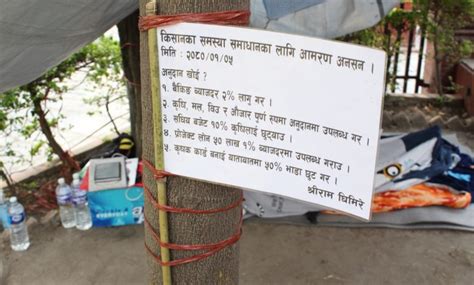 किसानका समस्या समाधानका लागि आमरण अनसन ।
मिति : २०८०/०१/०५
अनुदान खोई ?
१. बैकिङ्ग ब्याजदर २% लागु गर ।
२. कृषि, मल, विउ र औजार पुर्ण रुपमा अनुदानमा उपलब्ध गर ।
३. सचिव बजेट १०% कृषिलाई छुट्याउ ।
४. प्रोजेक्ट लोन ५० लाख १% ब्याजदरमा उपलब्ध गराउ ।
५. कृषक कार्ड बनाई यातायातमा ५०% भाडा छुट गर ।
श्रीराम घिमिरे